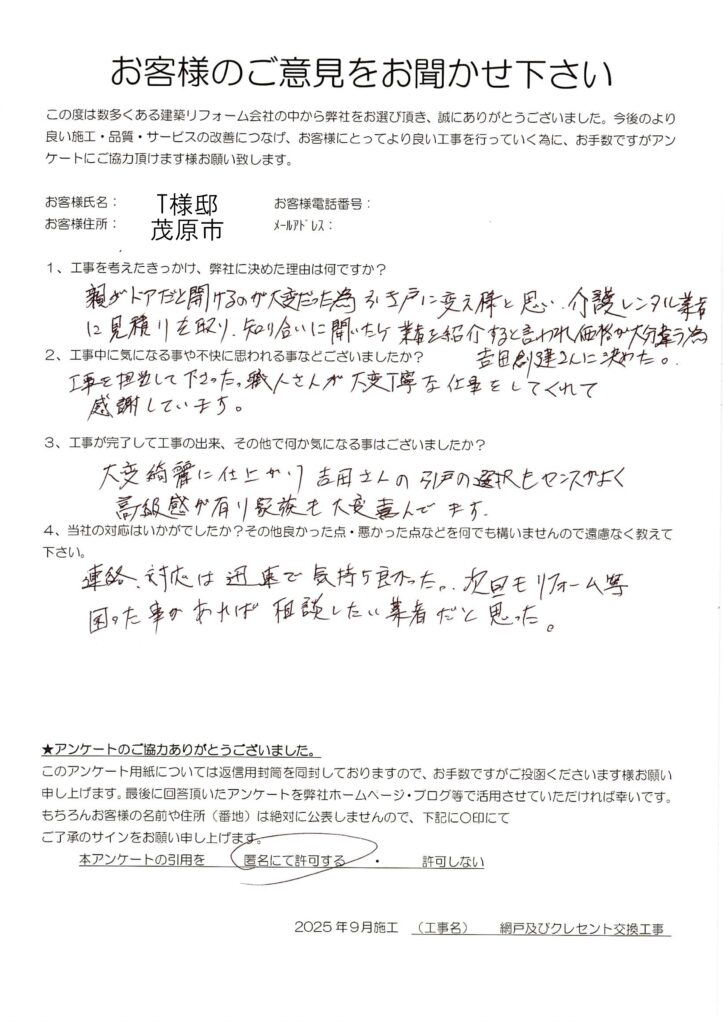 お客様のご意見をお聞かせ下さい
この度は数多くある建築リフォーム会社の中から弊社をお選び頂き、誠にありがとうございました。今後のより
良い施工・品質・サービスの改善につなげ、お客様にとってより良い工事を行っていく為に、お手数ですがアン
ケートにご協力頂けます様お願い致します。
お客様氏名： T様邸 お客様電話番号：
お客様住所： 茂原市 ﾒｰﾙｱﾄﾞﾚｽ：
１、工事を考えたきっかけ、弊社に決めた理由は何ですか？
親がドアだと開けるのが大変だった為 引き戸に変え様と思い、介護レンタル業者
に見積りを取り、知り合いに聞いたら業者を紹介すると言われ価格が大分違う為
吉田創建さんに決めた。
２、工事中に気になる事や不快に思われる事などございましたか？
工事を担当して下さった職人さんが大変丁寧な仕事をしてくれて
感謝しています。
３、工事が完了して工事の出来、その他で何か気になる事はございましたか？
大変綺麗に仕上がり吉田さんの引戸の選択もセンスがよく
高級感が有り家族も大変喜んでます。
４、当社の対応はいかがでしたか？その他良かった点・悪かった点などを何でも構いませんので遠慮なく教えて
下さい。
連絡、対応は迅速で気持ち良かった。次回もリフォーム等
困った事があれば相談したい業者だと思った。
★アンケートのご協力ありがとうございました。
このアンケート用紙については返信用封筒を同封しておりますので、お手数ですがご投函くださいます様お願い
申し上げます。最後に回答頂いたアンケートを弊社ホームページ・ブログ等で活用させていただければ幸いです。
もちろんお客様の名前や住所（番地）は絶対に公表しませんので、下記に〇印にて
ご了承のサインをお願い申し上げます。
本アンケートの引用を 匿名にて許可する ・ 許可しない
2025年9月施工 （工事名） 網戸及びクレセント交換工事